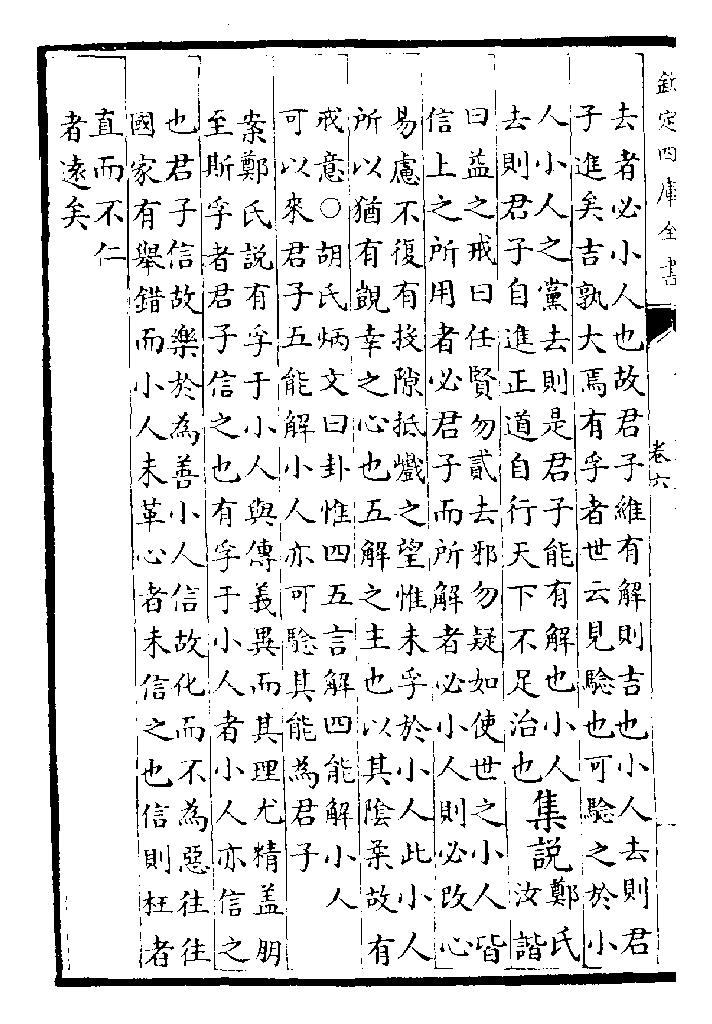 欽定四庫全書
卷六
去者必小人也故君子維有解則吉也小人去則君
子進矣吉孰大焉有孚者世云見驗也可驗之於小
人小人之黨去則是君子能有解也小人
去則君子自進正道自行天下不足治也
集說
鄭氏
汝諧
曰益之戒曰任賢勿貳去邪勿疑如使世之小人皆
信上之所用者必君子而所解者必小人則必改心
易慮不復有投隙抵巇之望惟未孚於小人此小人
所以猶有覬幸之心也五解之主也以其陰柔故有
戒意○胡氏炳文曰卦惟四五言解四能解小人
可以來君子五能解小人亦可驗其能為君子
案鄭氏說有孚于小人與傳義異而其理尤精盖朋
至斯孚者君子信之也有孚于小人者小人亦信之
也君子信故樂於為善小人信故化而不為惡往往
國家有舉錯而小人未革心者未信之也信則枉者
直而不仁
者遠矣